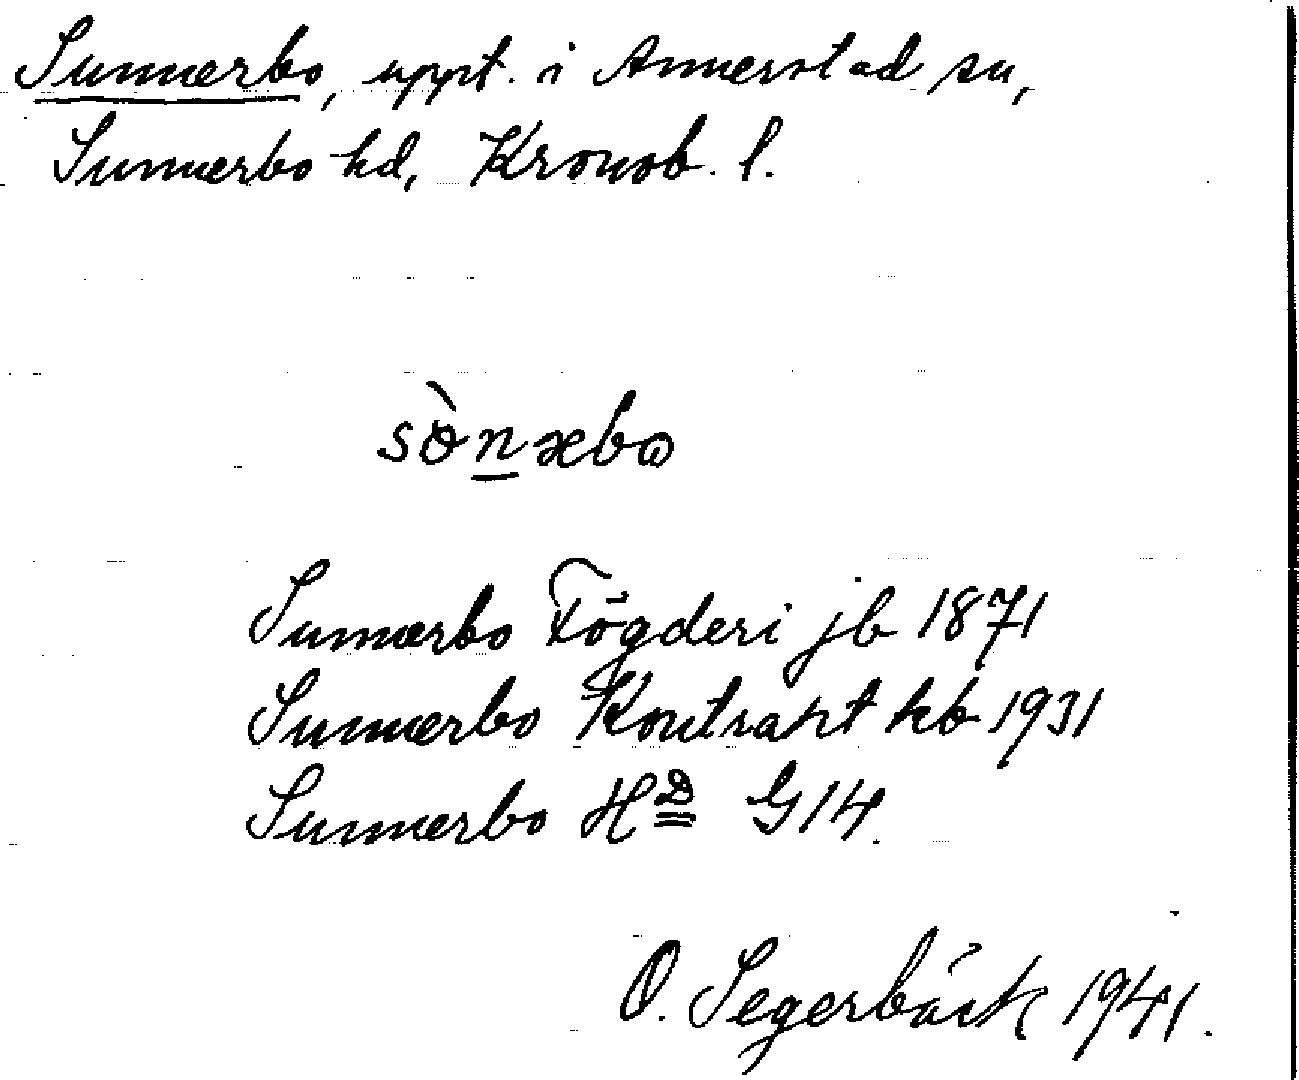 Sunnerbo, uppt. i Annerstad sn,
Sunnerbo hd, Kronob. l.
sònæbo
Sunnerbo Fögderi jb 1871
Sunnerbo Kontrakt kb 1931
Sunnerbo HD G14.
O. Segerbäck 1941.